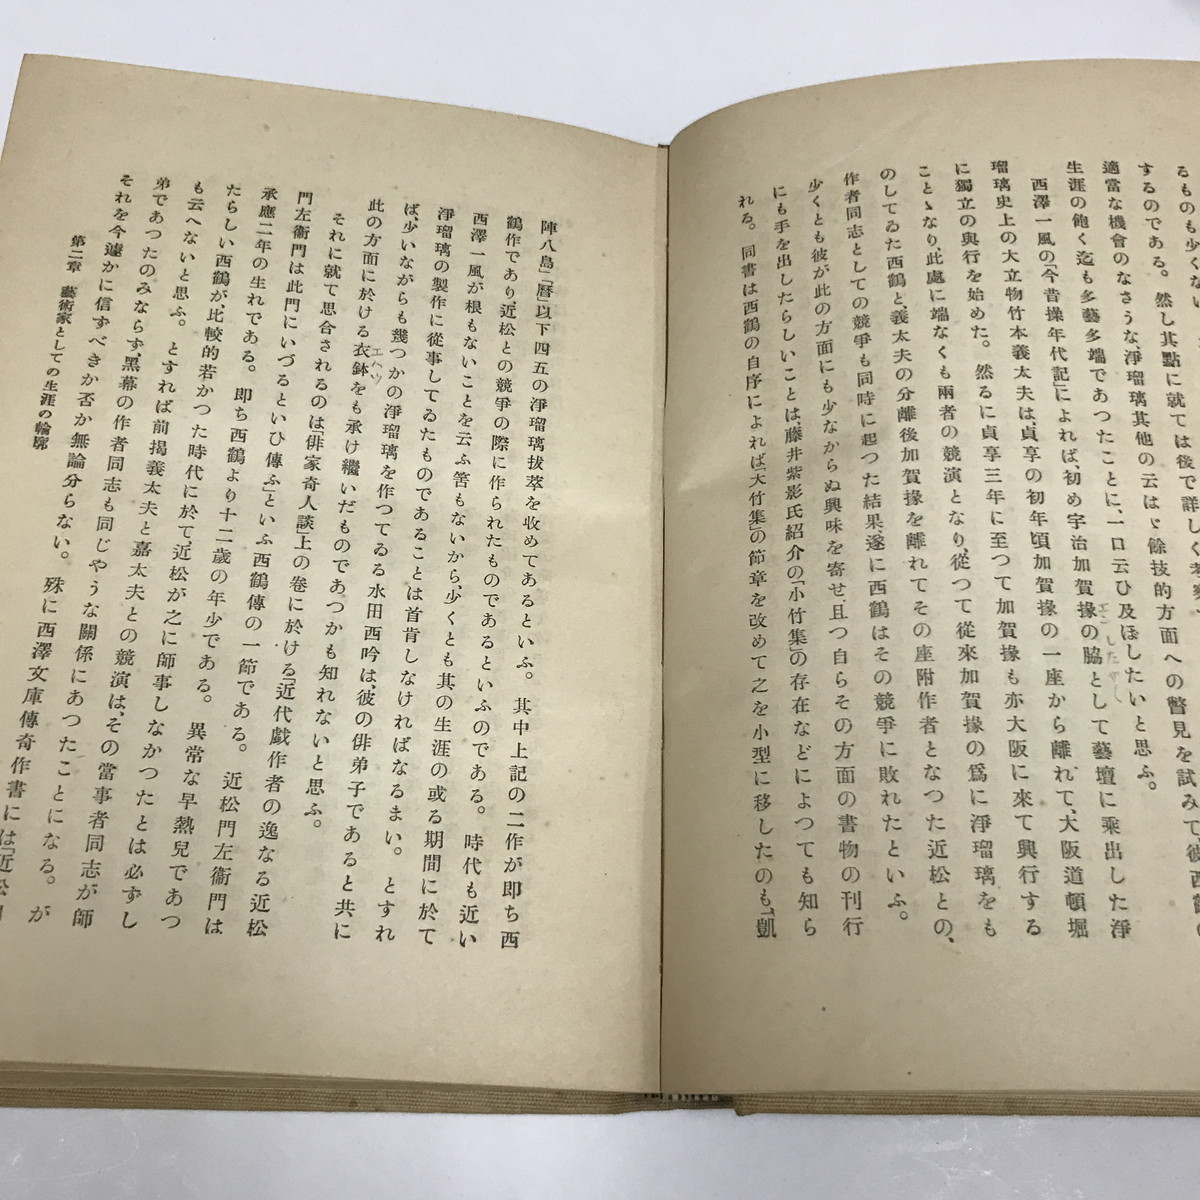 るものも少くない
するのである。然し其點に就ては後で詳しく考察
適當な機會のなさうな、淨瑠璃其他の云はゞ餘技的方面への瞥見を試みて彼西鶴の
生涯の飽く迄も多藝多端であつたことに、一口云ひ及ぼしたいと思ふ。
西澤一風の「今昔操年代記」によれば、初め宇治加賀掾の脇として藝壇に乘出した淨
瑠璃史上の大立物竹本義太夫は、貞享の初年頃加賀掾の一座から離れて、大阪道頓堀
に獨立の興行を始めた。然るに貞享三年に至つて加賀掾も亦大阪に來て興行する
ことゝなり、此處に端なくも兩者の競演となり、從つて從來加賀掾の爲に淨瑠璃をも
のしてゐた西鶴と、義太夫の分離後加賀掾を離れてその座附作者となつた近松との、
作者同志としての競爭も同時に起つた結果、遂に西鶴はその競爭に敗れたといふ。
少くとも彼が此の方面にも少なからぬ興味を寄せ、且つ自らその方面の書物の刊行
にも手を出したらしいことは、藤井紫影氏紹介の「小竹集」の存在などによつても知ら
れる。同書は西鶴の自序によれば「大竹集」の節章を改めて之を小型に移したのも、「凱
陣八島」「曆」以下四五の淨瑠璃拔萃を收めてあるといふ。其中上記の二作が即ち西
鶴作であり、近松との競爭の際に作られたものであるといふのである。時代も近い
西澤一風が根もないことを云ふ筈もないから、少くとも其の生涯の或る期間に於て
淨瑠璃の製作に從事してゐたものであることは首肯しなければなるまい。とすれ
ば、少いながらも幾つかの淨瑠璃を作つてゐる水田西吟は、彼の俳弟子であると共に
此の方面に於ける衣鉢をも承け繼いだものであつかも知れないと思ふ。
それに就て思合されるのは「俳家奇人談」上の卷に於ける「近代戯作者の逸なる近松
門左衞門は此門にいづるといひ傳ふ」といふ西鶴傳の一節である。近松門左衞門は
承應二年の生れである。即ち西鶴より十二歳の年少である。異常な早熱兒であつ
たらしい西鶴が、比較的若かつた時代に於て、近松が之に師事しなかつたとは必ずし
も云へないと思ふ。とすれば前掲義太夫と嘉太夫との競演は、その當事者同志が師
弟であつたのみならず、黑幕の作者同志も同じやうな關係にあつたことになる。が
それを今遽かに信ずべきか否か無論分らない。殊に西澤文庫傳奇作書には「近松
第二章 藝術家としての生涯の輪廓